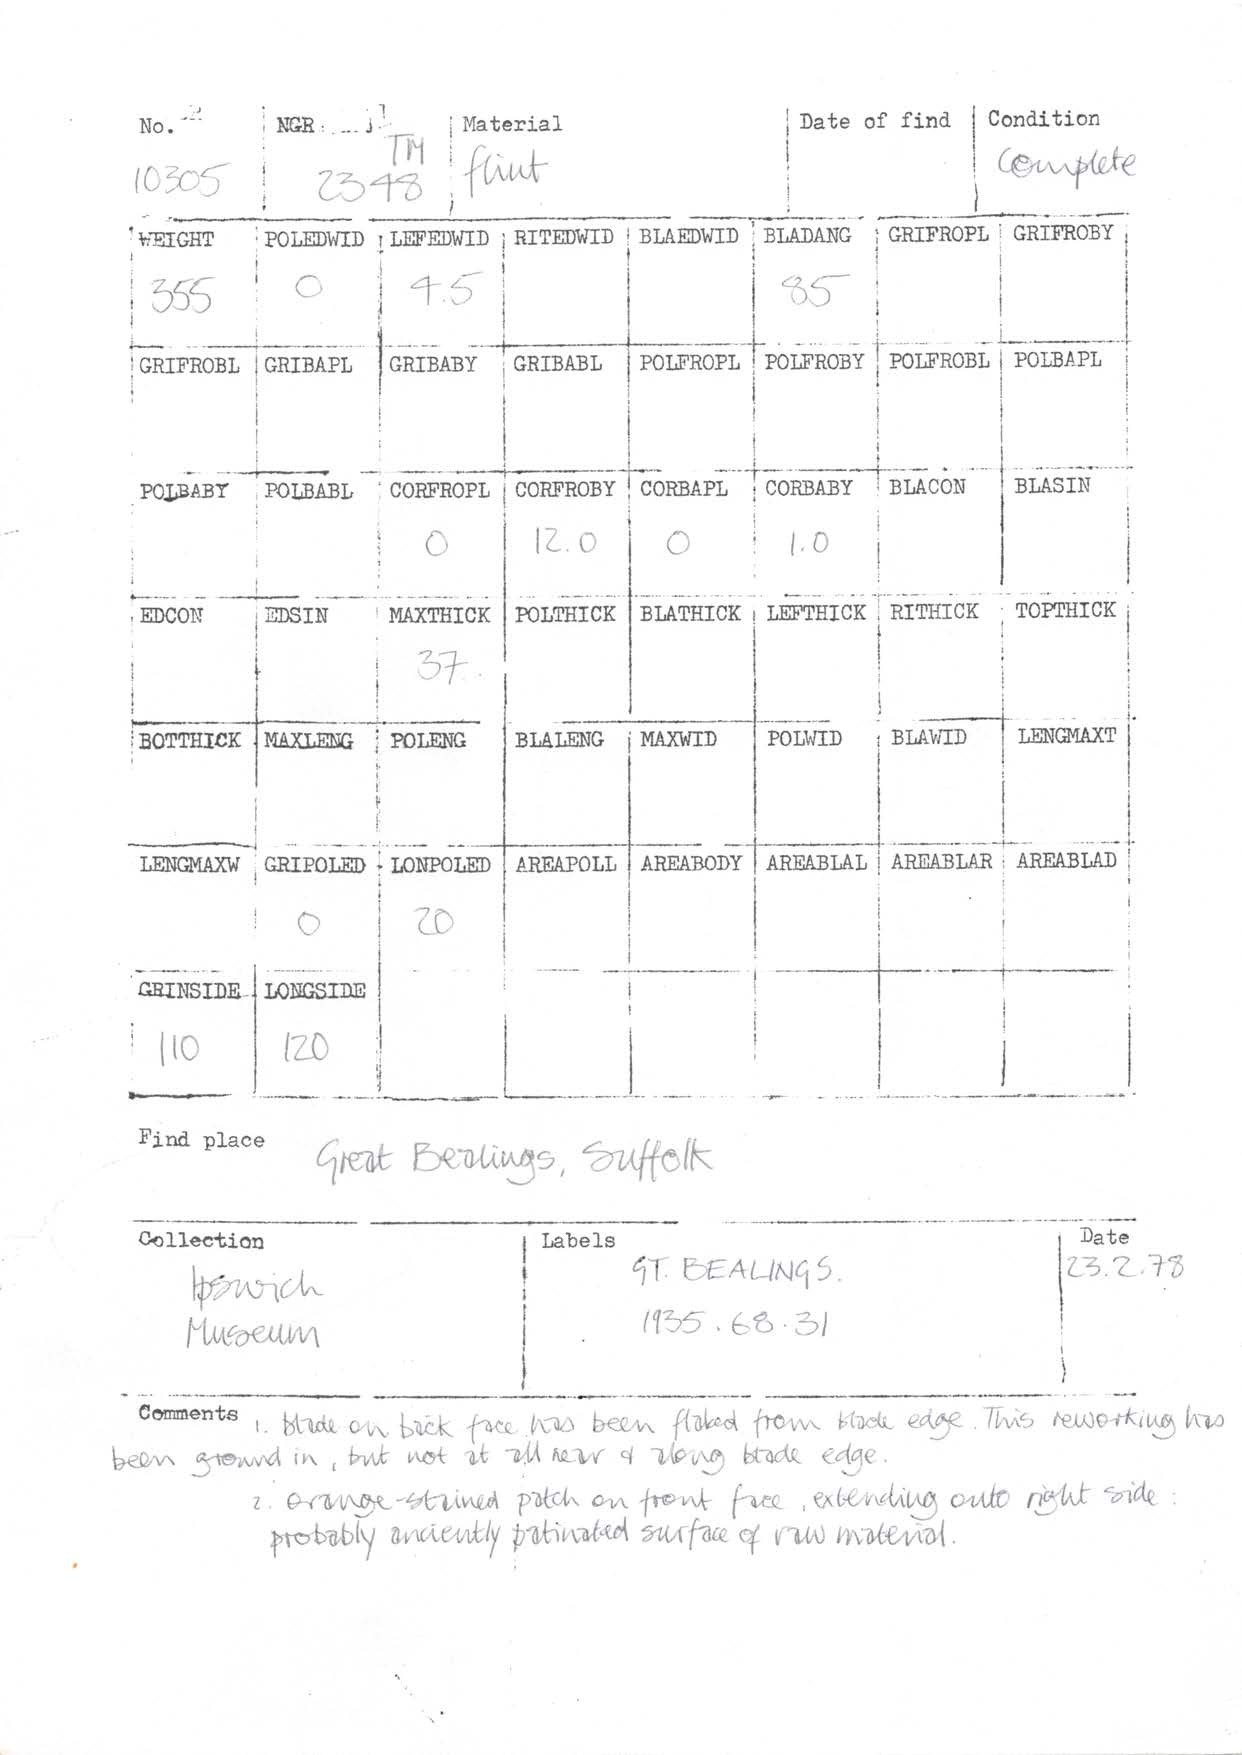 No. NGR: Material Date of find Condition
10305 TM 2348 flint Complete
WEIGHT POLEDWID LEFEDWID RITEDWID BLAEDWID BLADANG GRIFROPL GRIFROBY
355 0 4.5 85
GRIFROBL GRIBAPL GRIBABY GRIBABL POLFROPL POLFROBY POLFROBL POLBAPL
POLBABY POLBABL CORFROPL CORFROBY CORBAPL CORBABY BLACON BLASIN
0 12.0 0 1.0
EDCON EDSIN MAXTHICK POLTHICK BLATHICK LEFTHICK RITHICK TOPTHICK
37
BOTTHICK MAXLENG POLENG BLALENG MAXWID POLWID BLAWID LENGMAXT
LENGMAXW GRIPOLED LONPOLED AREAPOLL AREABODY AREABLAL AREABLAR AREABLAD
0 20
GRINSIDE LONGSIDE
110 120
Find place Great Bealings, Suffolk
Collection Labels Date
Ipswich GT. BEALINGS. 23.2.78
Museum 1935.68.31
Comments 1. blade on back face has been flaked from blade edge. This reworking has
been ground in, but not at all near & along blade edge.
2. orange-stained patch on front face, extending onto right side:
probably anciently patinated surface of raw material.